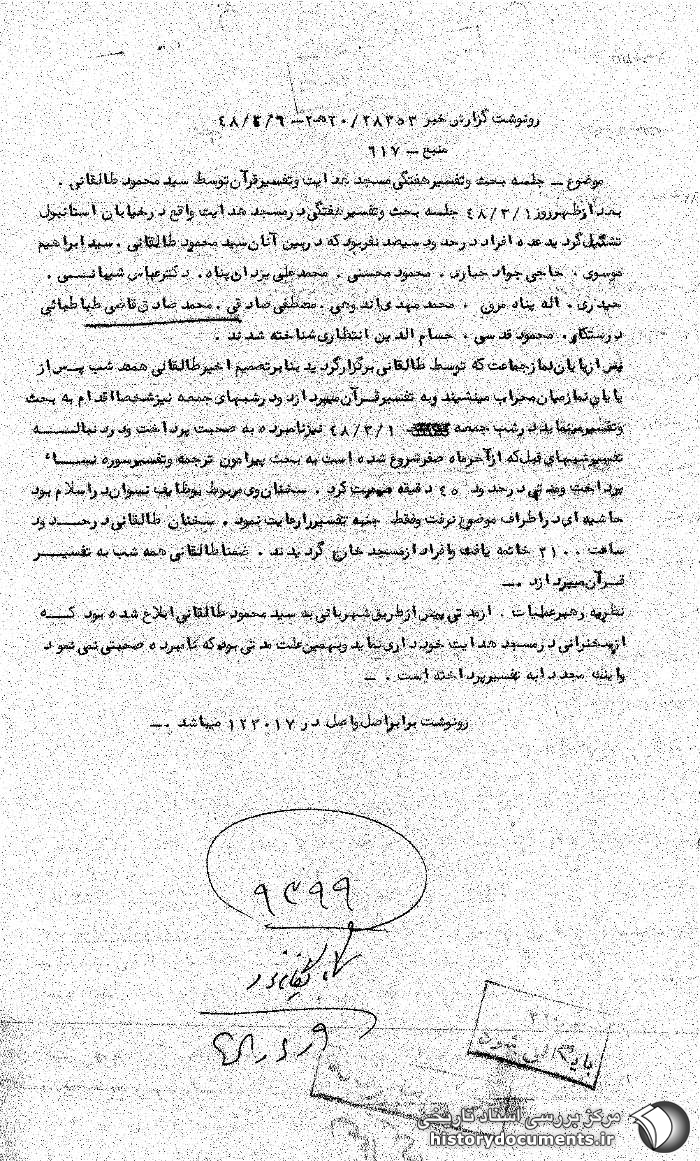 رونوشت گزارش خبر ۲۸۳۵۳/ ۲۰ه۲ – ۴۸/۴/۹
منبع – ۶۱۷
موضوع – جلسه بحث و تفسیر هفتگی مسجد هدایت و تفسیر قرآن توسط سید محمود طالقانی .
بعد از ظهر روز ۴۸/۳/۱ جلسه بحث و تفسیر هفتگی در مسجد هدایت واقع در خیابان استانبول
تشکیل گردید عده افراد در حدود سیصد نفر بود که در بین آنان سید محمود طالقانی . سید ابراهیم
موسوی . حاجی جواد جباری . محمود محسنی . محمد علی یزدان پناه . دکتر عباس شیبانی .
حیدری . اله پناه . محمد مهدی . مصطفی صادقی . محمد صادق قاضی طباطبائی
درستکار . محمود قدسی . حسام الدین انتظاری شناخته شدند .
پس از پایان نماز جماعت که توسط طالقانی برگزار گردید بنا بر تصمیم اخیر طالقانی همه شب پس از
پایان نماز میان محراب مینشیند و به تفسیر قرآن میپردازد و در شبهای جمعه نیز شخصا اقدام به بحث
و تفسیر مینماید در شب جمعه ۴۸/۳/۱ نیز نامبرده به صحبت پرداخت و در دنباله
تفسیر شبهای قبل که از آخر ماه صفر شروع شده است به بحث پیرامون ترجمه و تفسیر سوره نساء
پرداخت و مدتی در حدود ۴۵ دقیقه صحبت کرد . سخنان وی مربوط بوظایف نسوان در اسلام بود
حاشیه ای در اطراف موضوع نرفت و فقط جنبه تفسیر را رعایت نمود . سخنان طالقانی در حدود
ساعت ۲۱۰۰ خاتمه یافت و افراد از مسجد خارج گردیدند . ضمنا طالقانی همه شب به تفسیر
قرآن میپردازد .–
نظریه رهبر عملیات . از مدتی پیش از طریق شهربانی به سید محمود طالقانی ابلاغ شده بود که
از سخنرانی در مسجد هدایت خودداری نماید و بهمین علت مدتی بود که نامبرده صحبتی نمی نمود
و اینک مجددا به تفسیر پرداخته است . –
رونوشت برابر اصل و اصل در ۱۲۳۰۱۷ میباشد .–
۹۳۹۹
۲۱۰
بایگانی شود
مرکز بررسی اسناد تاریخی
historydocuments.ir